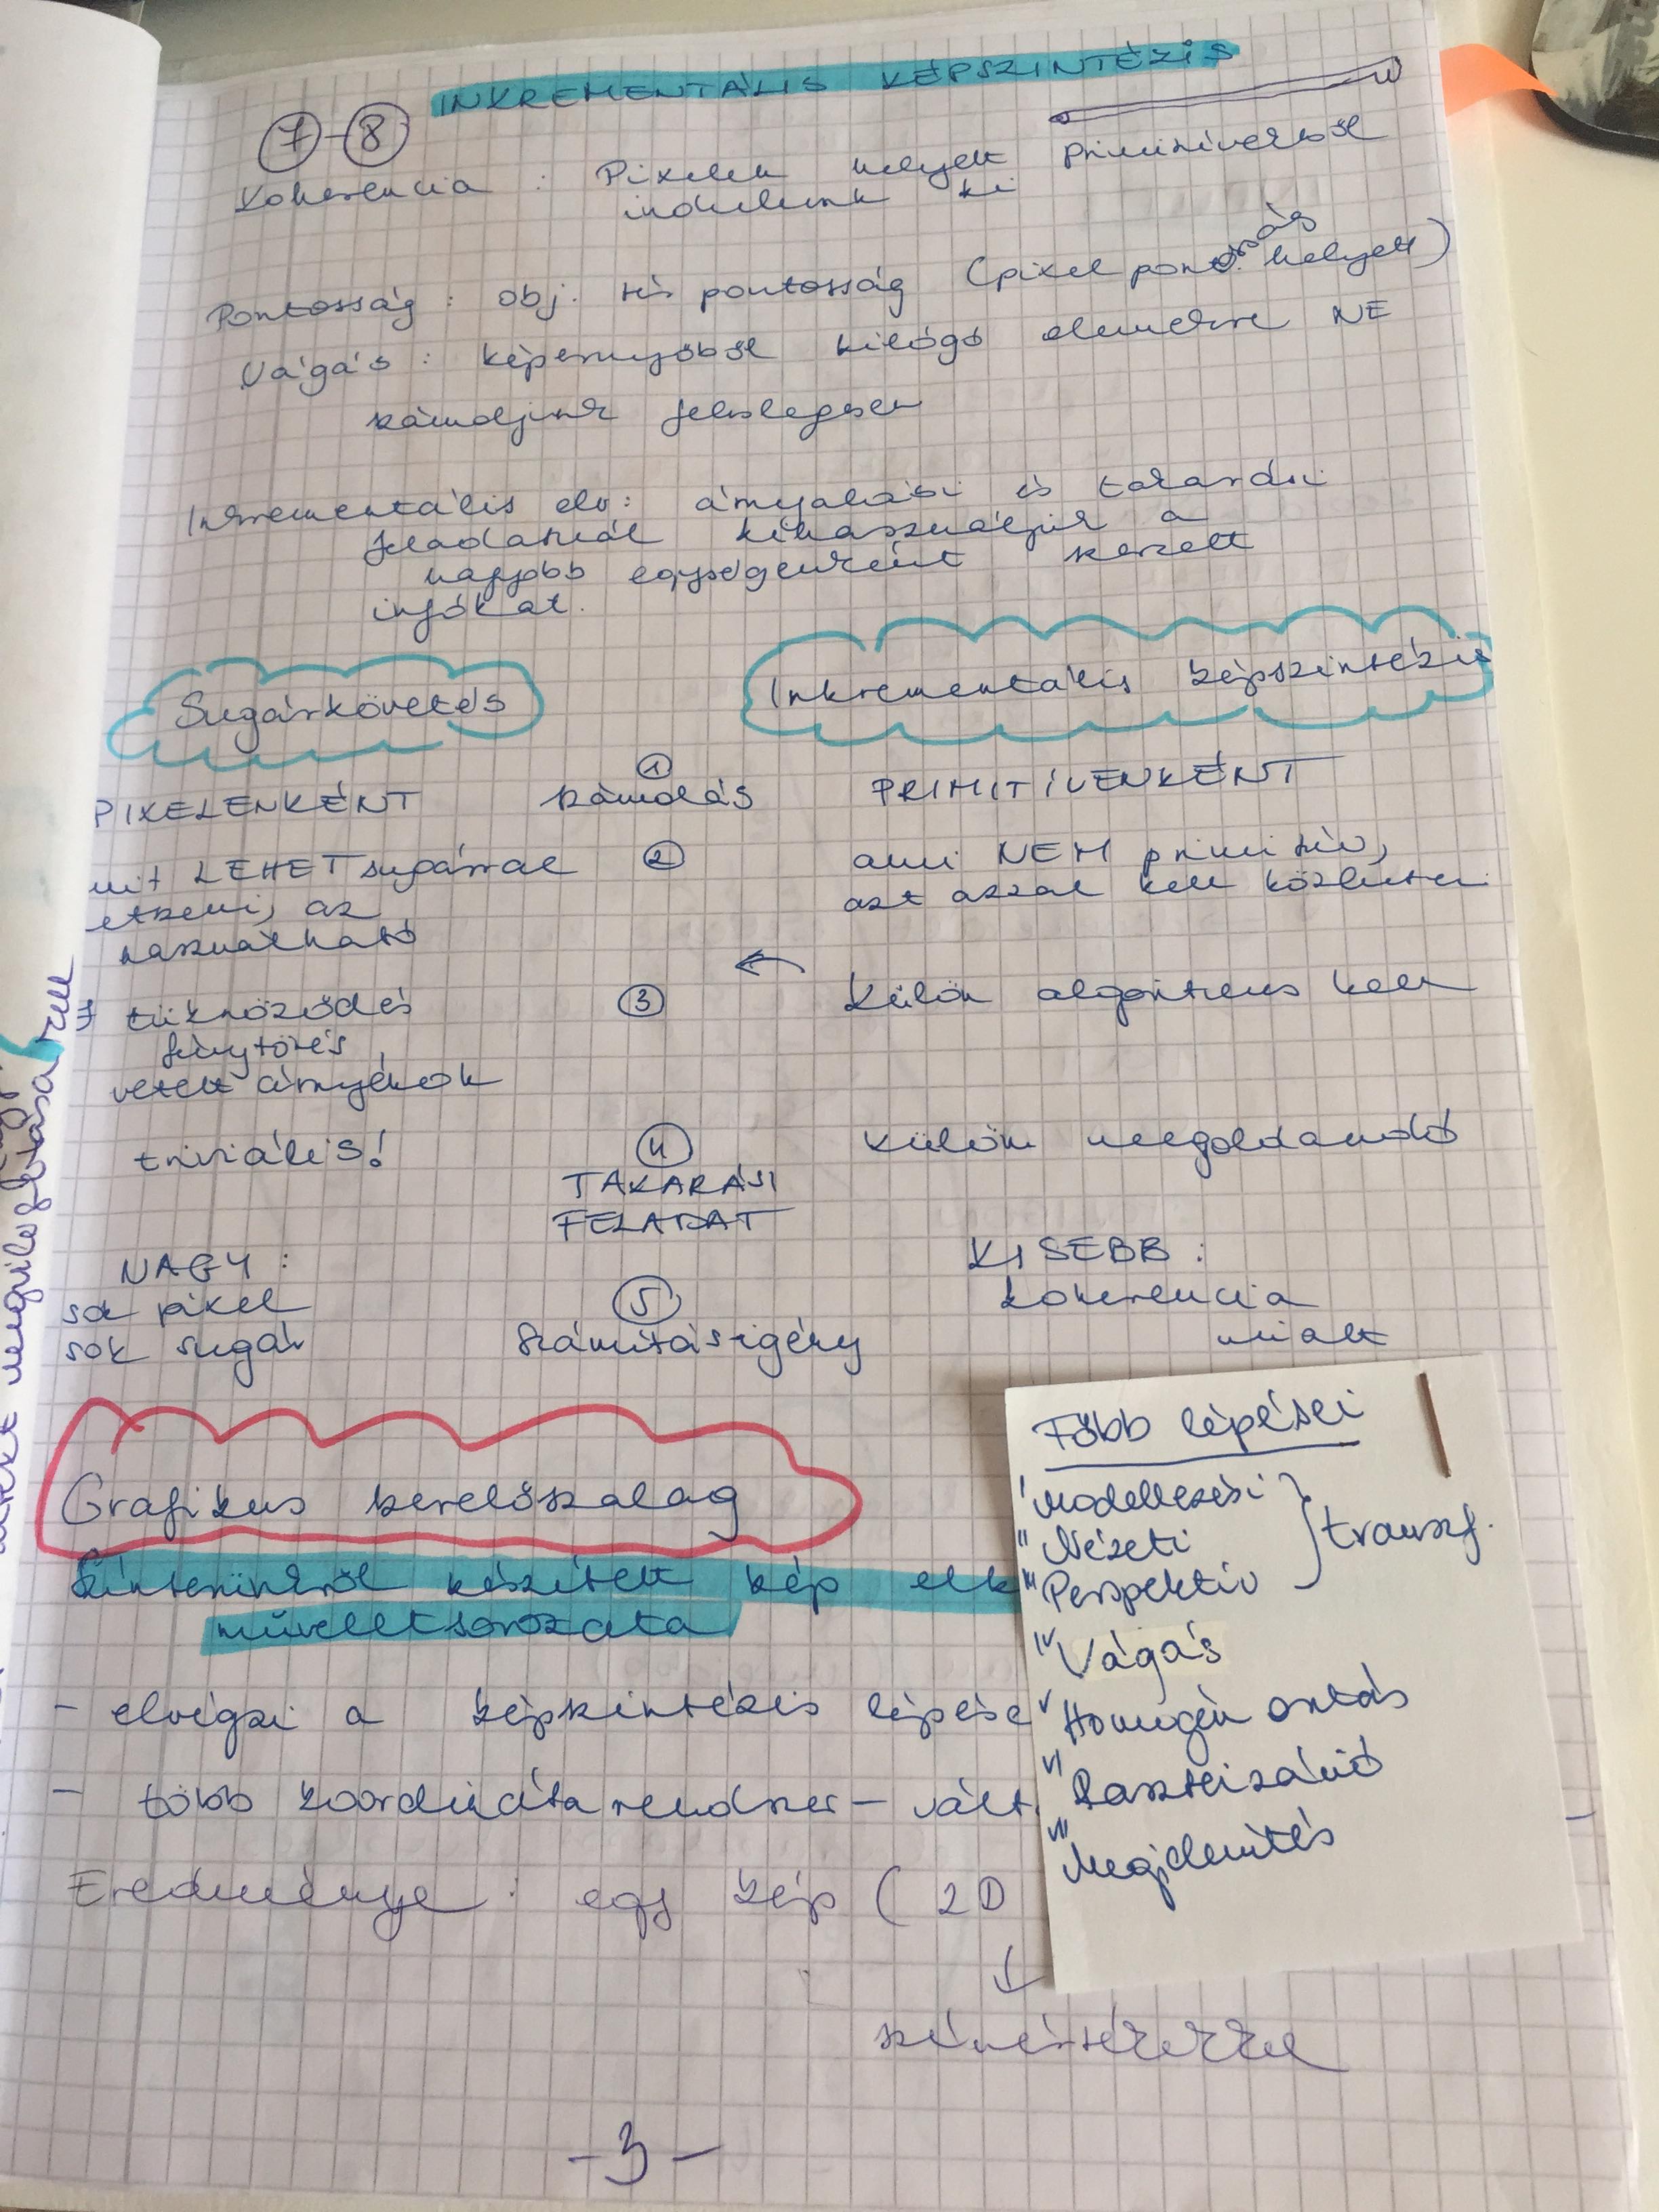 INKREMENTÁLIS KÉPSZINTÉZIS
7-8
Koherencia : Pixelek helyett primitívekből
indulunk ki
Pontosság : obj. tér pontosság (pixel pontosság helyett)
Vágás : képernyőből kilógó elemekre NE
számoljunk feleslegesen
Inkrementális elv: árnyalási és takarási
feladatnál kihasználjuk a
nagyobb egységenként szerzett
infókat.
Sugárkövetés
Inkrementális képszintézis
PIXELENKÉNT
① számolás
PRIMITÍVENKÉNT
mit LEHET sugárral
etszeni, az
használható
②
ami NEM primitív,
azt azzal kell közelíteni
tükröződés
fénytörés
vetett árnyékok
③
←
külön algoritmus kell
triviális!
④
TAKARÁSI
FELADAT
külön megoldandó
NAGY :
sok pixel
sok sugár
⑤
Számításigény
KISEBB :
koherencia
miatt
Grafikus szerelőszalag
Színterünkről készített kép elk
műveletsorozata
- elvégzi a képszintézis lépése
- több koordinátarendszer - vált
Eredménye : egy kép ( 2D
↓
színértékekkel
- 3 -
Főbb lépései
I Modellezési
II Nézeti } transzf.
III Perspektív
IV Vágás
V Homogén osztás
VI Raszterizáció
VII Megjelenítés